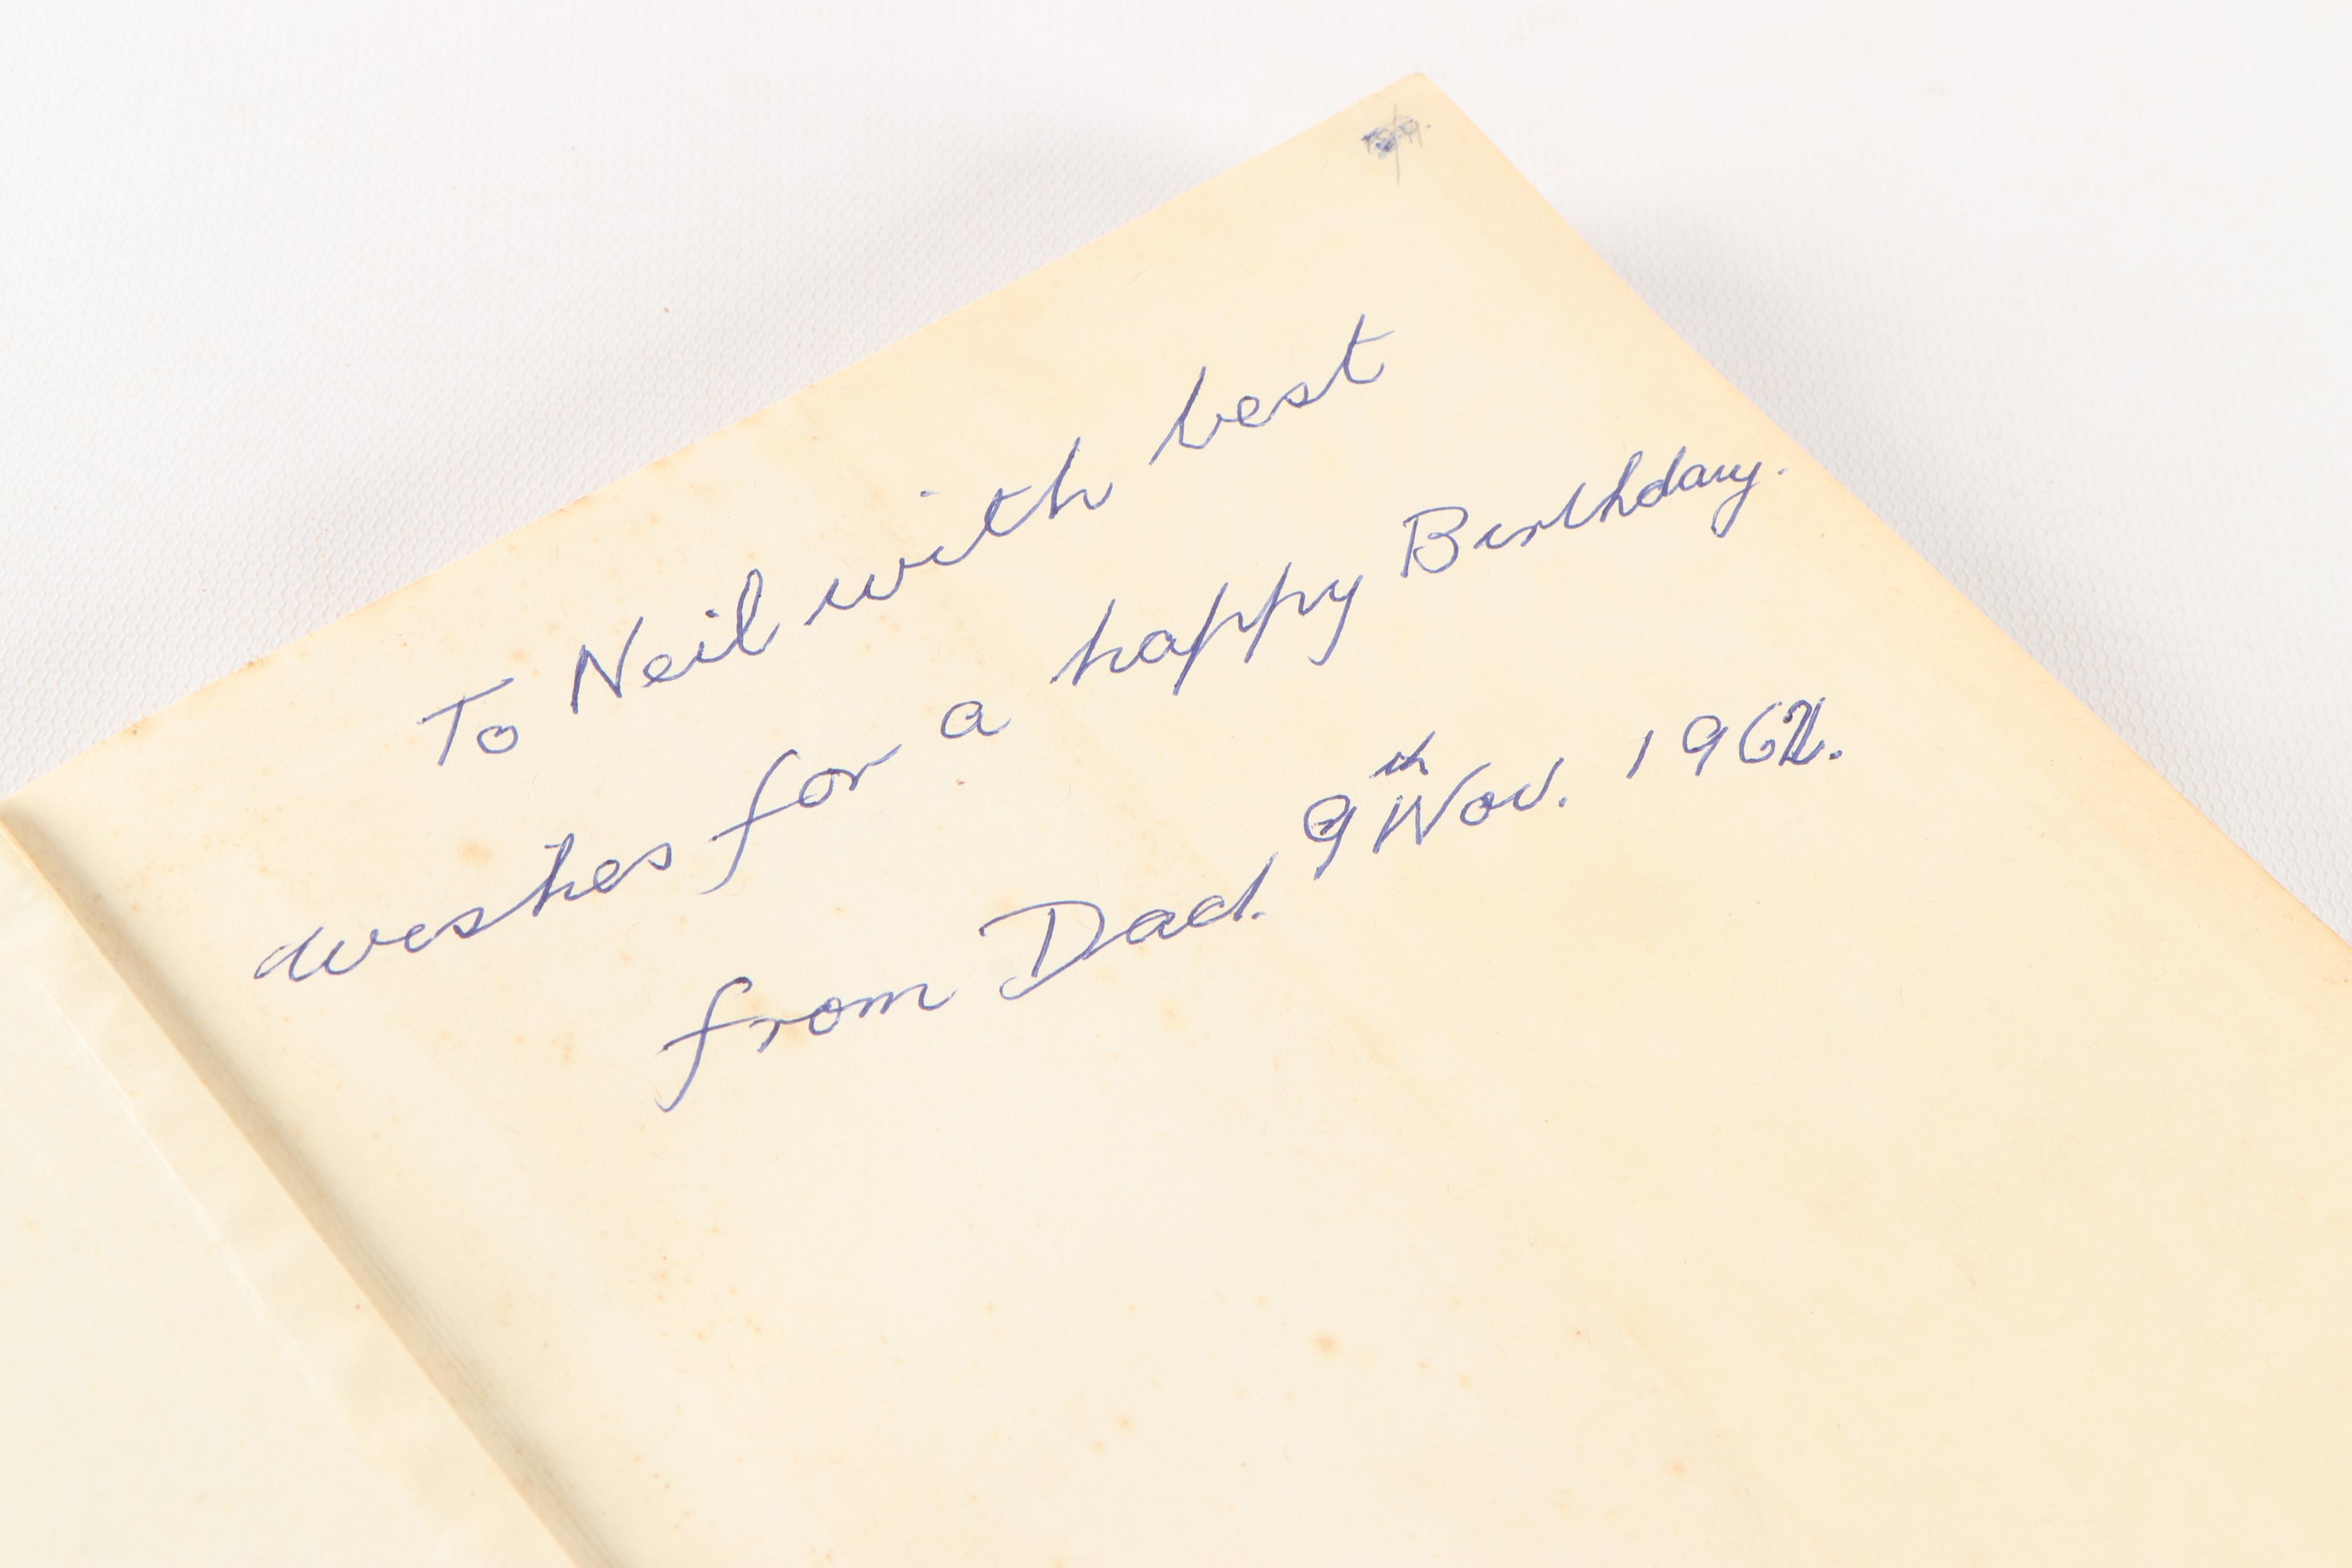 To Neil with best
wishes for a happy Birthday.
from Dad. 9th Nov. 1962.